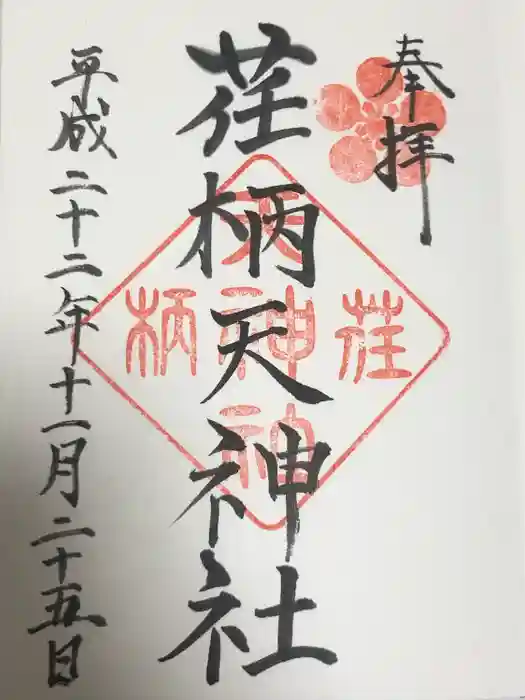 奉拝
荏柄天神社
平成二十二年十一月二十五日
荏
天神
柄